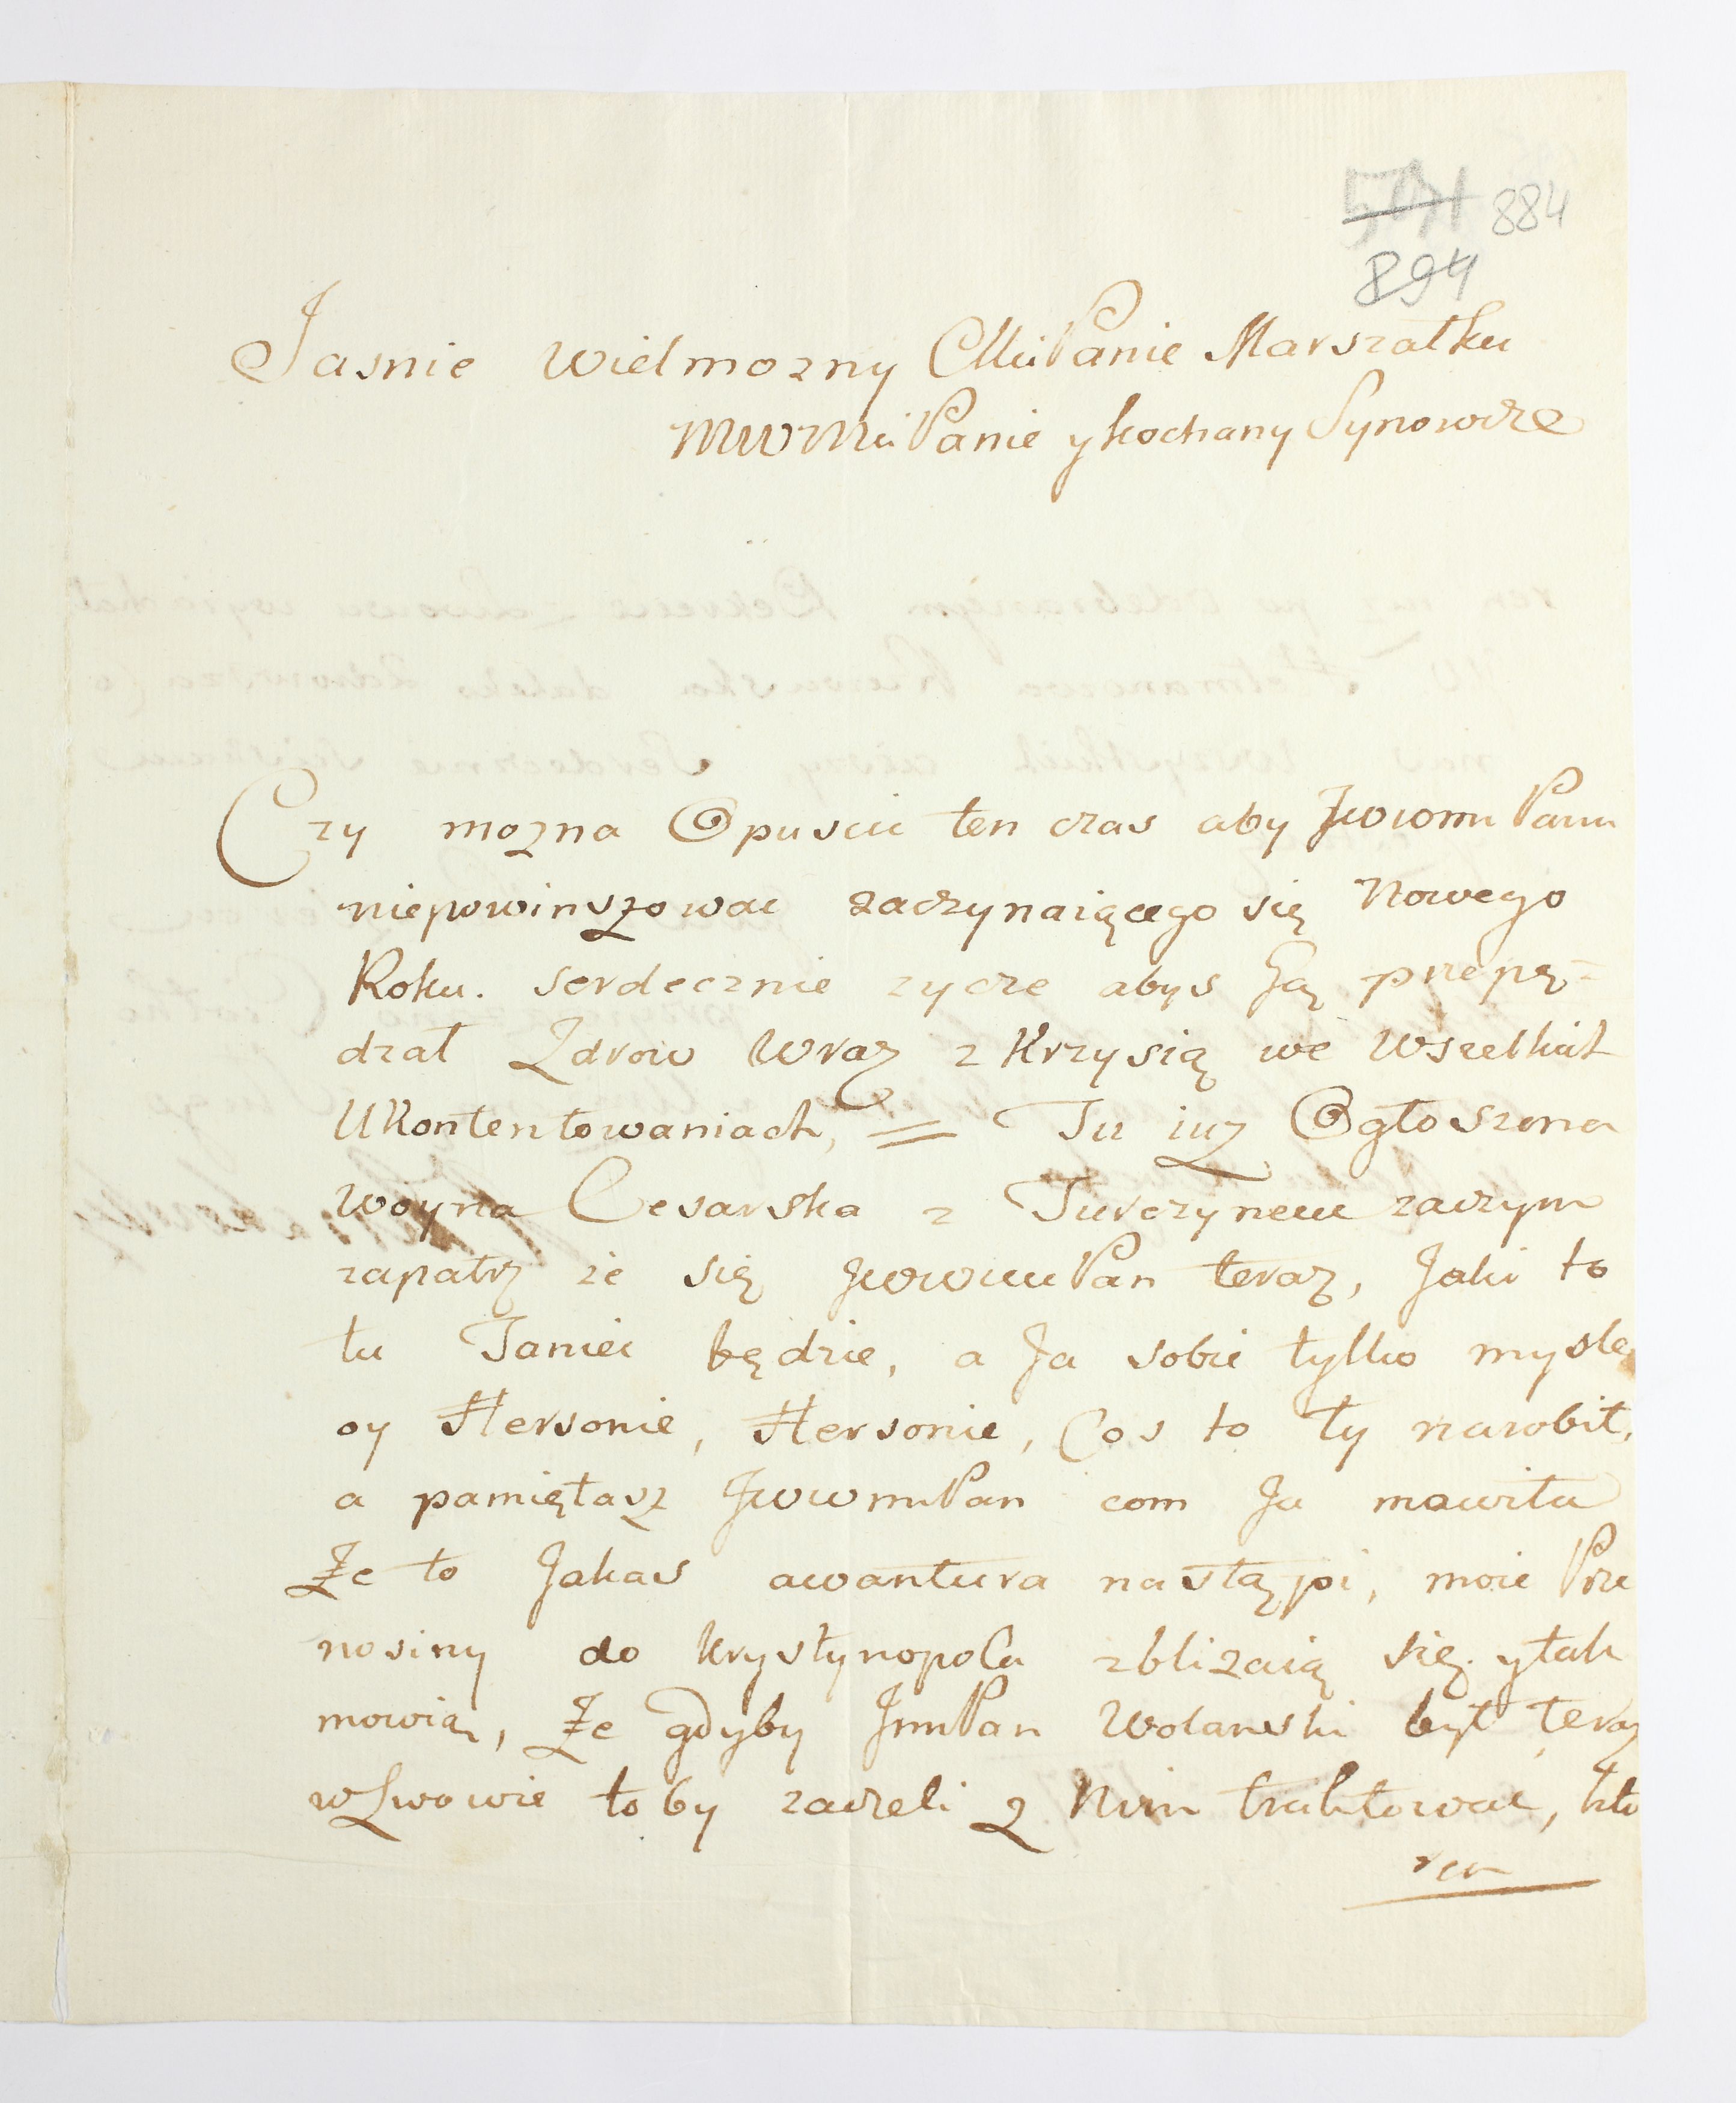 884
894
Jasnie Wielmozny Mci Panie Marszałku
MWMci Panie y kochany Synowcze
Czy mozna Opuscic ten czas aby JWWMu Panu
niepowinszowac zaczynaiącego się Nowego
Roku. serdecznie zycze abys Gą przepę=
dzał Zdrow Wraz z Krzysią we Wszelkich
Ukontentowaniach, = Tu iuz Ogłoszona
Woyna Cesarska z Turczynem zaczym
zapatrz ze się JWWMu Pan teraz, Jaki to
tu Taniec będzie, a Ja sobie tylko mysle,
oy Hersonie, Hersonie, Cos to ty narobił,
a pamiętasz JWWMu Pan com Ja mawiła
Ze to Jakas awantura nastąpi, moie Prze
nosiny do Krystynopola zblizaią się. ytak
mowią, Ze gdyby JmPan Wolanski był teraz
wLwowie to by zaczeli z Nim traktowac, kto
ren